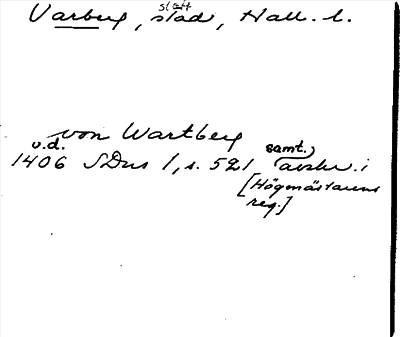 Varberg, slott stad, Hall. l.
von Wartberg
u.d.
1406 SDns 1, s. 521 samt. avskr. i
[Högmästarens
reg.]